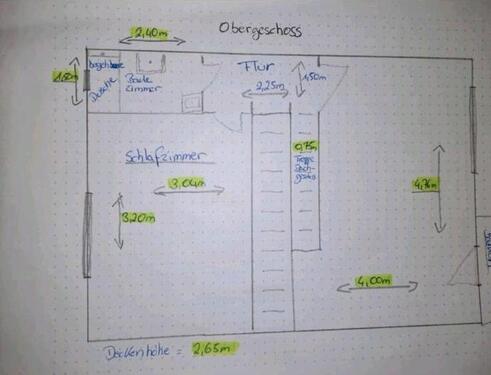 Obergeschoss
2,40m
Flur
begehbare
Dusche
Bade
zimmer
1,50m
1,50m
2,25m
0,75m
Treppe
Dach-
Schlafzimmer
3,04m
3,20m
4,76m
4,00m
Deckenhöhe = 2,65m